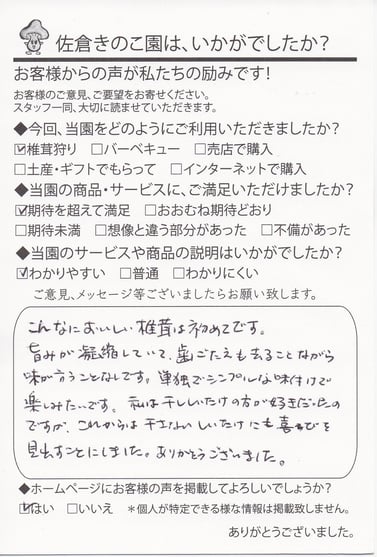 佐倉きのこ園は、いかがでしたか?
お客様からの声が私たちの励みです!
お客様のご意見、ご要望をお寄せください。
スタッフ一同、大切に読ませていただきます。
◆今回、当園をどのようにご利用いただきましたか?
☑椎茸狩り □バーベキュー □売店で購入
□土産・ギフトでもらって □インターネットで購入
◆当園の商品・サービスに、ご満足いただけましたか?
☑期待を超えて満足 □おおむね期待どおり
□期待未満 □想像と違う部分があった □不備があった
◆当園のサービスや商品の説明はいかがでしたか?
☑わかりやすい □普通 □わかりにくい
ご意見、メッセージ等ございましたらお願い致します。
こんなにおいしい椎茸は初めてです。
旨みが凝縮していて、歯ごたえも去ることながら
味が言うことなしです。単独でシンプルな味付けで
楽しみたいです。私は干ししいたけの方が好きだったの
ですが、これからは干さないしいたけにも喜びを
見出すことにしました。ありがとうございました。
◆ホームページにお客様の声を掲載してよろしいでしょうか?
☑はい □いいえ *個人が特定できる様な情報は掲載致しません。
ありがとうございました。